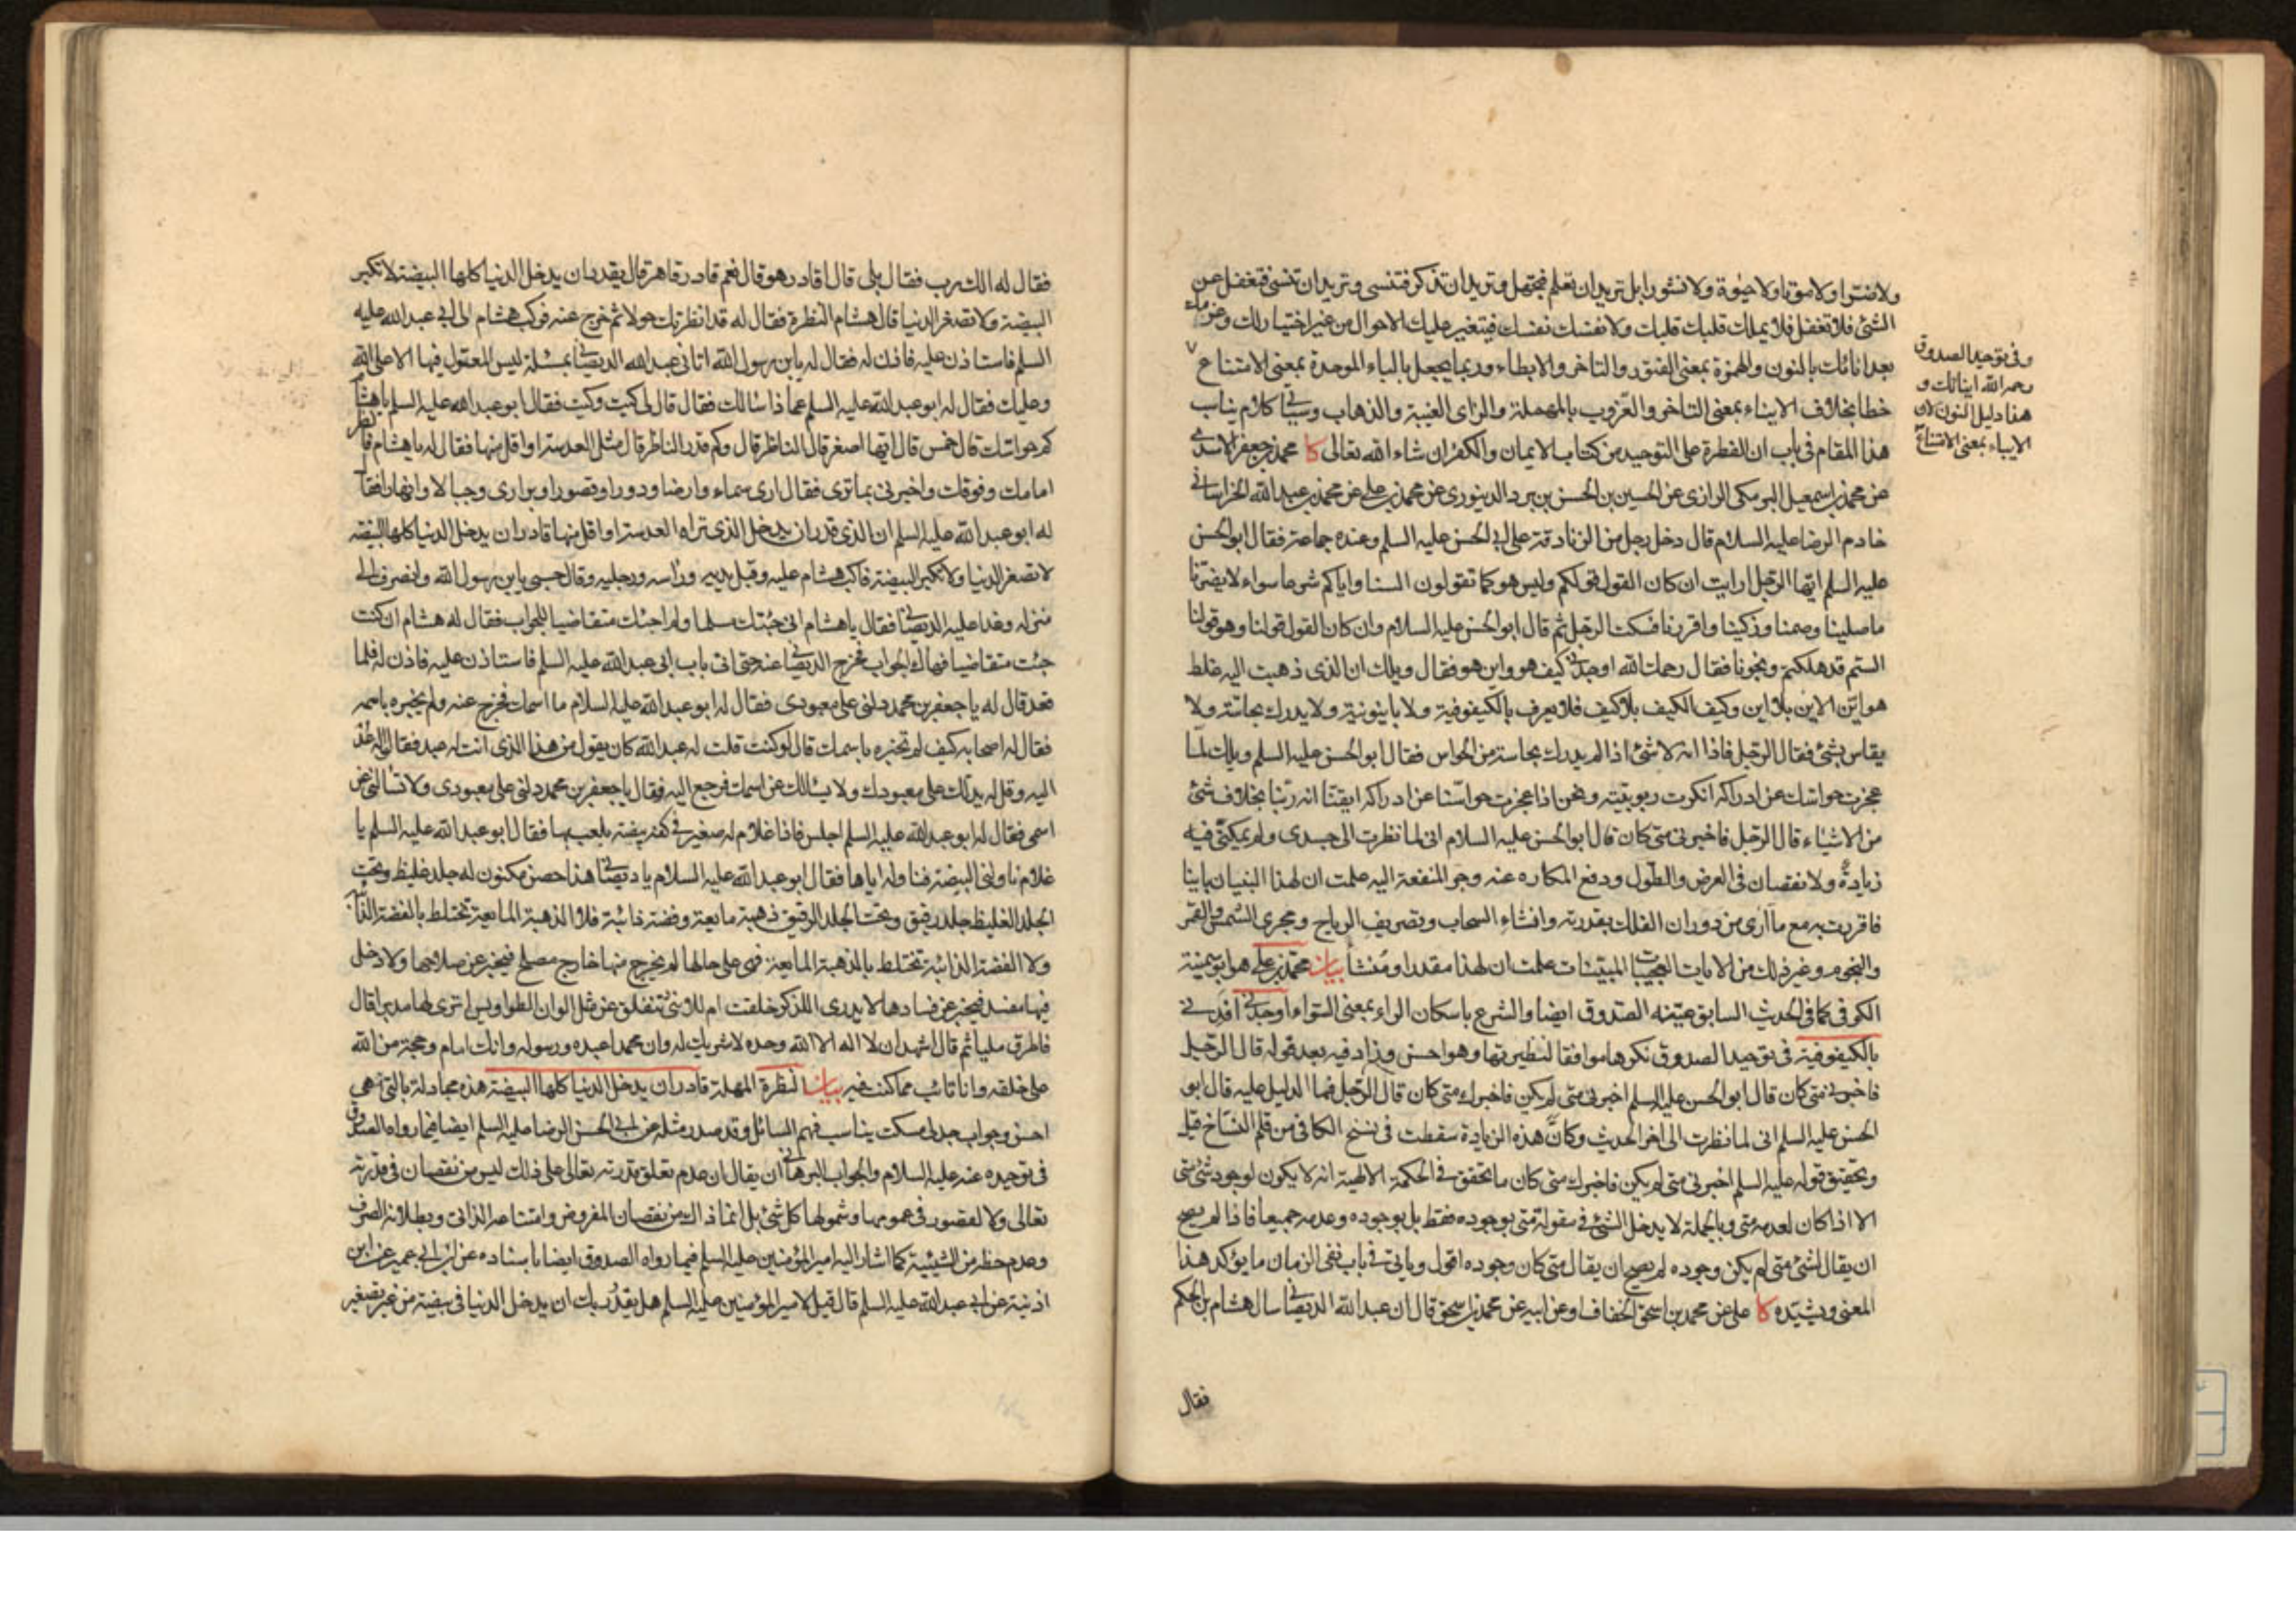 ولا موتا ولا حيوة ولا نشورا بل تريد ان تعلم فتجهل وتريد ان تذكر فتنسى وتريد ان تنسى فتغفل عن
الشئ فلا تغفل فلا يملك قلبك قلبك ولا نفسك نفسك فيتغير عليك الاحوال من غير اختيار لك وعزمك
بعد انائك بالنون والهمزة بمعنى الفتور والتاخر والابطاء وربما يجعل بالباء الموحدة بمعنى الامتناع
خطا بخلاف الايناء بمعنى التاخر والعزوب بالمهملة والزاى الغيبة والذهاب وسيأتى كلام يناسب
هذا المقام فى باب ان الفطرة على التوحيد من كتاب الايمان والكفر ان شاء الله تعالى كا محمد بن جعفر الاسدى
عن محمد بن اسمعيل البرمكى الرازى عن الحسين بن الحسن بن برد الدينورى عن محمد بن على عن محمد بن عبد الله الخراسانى
خادم الرضا عليه السلام قال دخل رجل من الزنادقة على ابى الحسن عليه السلم وعنده جماعة فقال ابو الحسن
عليه السلم ايها الرجل ارايت ان كان القول قولكم وليس هو كما تقولون السنا واياكم شرعا سواء لا يضرنا
ما صلينا وصمنا وزكينا واقررنا فسكت الرجل ثم قال ابو الحسن عليه السلام وان كان القول قولنا وهو قولنا
الستم قد هلكتم ونجونا فقال رحمك الله اوجدنى كيف هو واين هو فقال ويلك ان الذى ذهبت اليه غلط
هو اين الاين بلا اين وكيف الكيف بلا كيف فلا يعرف بالكيفوفية ولا باينونية ولا يدرك بحاسة ولا
يقاس بشئ فقال الرجل فاذا انه لا شئ اذا لم يدرك بحاسة من الحواس فقال ابو الحسن عليه السلم ويلك لما
عجزت حواسك عن ادراكه انكرت ربوبيته ونحن اذا عجزت حواسنا عن ادراكه ايقنا انه ربنا بخلاف شئ
من الاشياء قال الرجل فاخبرنى متى كان قال ابو الحسن عليه السلام انى لما نظرت الى جسدى ولم يمكنى فيه
زيادة ولا نقصان فى العرض والطول ودفع المكاره عنه وجر المنفعة اليه علمت ان لهذا البنيان بانيا
فاقررت به مع ما ارى من دوران الفلك بقدرته وانشاء السحاب وتصريف الرياح ومجرى الشمس والقمر
والنجوم وغير ذلك من الايات العجيبات المبينات علمت ان لهذا مقدرا ومنشأ بيان محمد بن على هو ابو سمينة
الكوفى كما فى الحديث السابق عينه الصدوق ايضا والشرع باسكان الراء بمعنى السواء اوجدنى افدنى
بالكيفوفية فى توحيد الصدوق نكرها موافقا لنظيرتها وهو احسن وزاد فيه بعد قوله قال الرجل
فاخبرنى متى كان قال ابو الحسن عليه السلم اخبرنى متى لم يكن فاخبرك متى كان قال الرجل فما الدليل عليه قال ابو
الحسن عليه السلم انى لما نظرت الى اخر الحديث وكان هذه الزيادة سقطت فى نسخ الكافى من قلم النساخ قيل
وتحقيق قوله عليه السلم اخبرنى متى لم يكن فاخبرك متى كان ما تحقق فى الحكمة الالهية انه لا يكون لوجود شئ متى
الا اذا كان لعدمه متى وبالجملة لا يدخل الشئ فى مقولة متى بوجوده فقط بل بوجوده وعدمه جميعا فاذا لم يصح
ان يقال لشئ متى لم يكن وجوده لم يصح ان يقال متى كان وجوده اقول وياتى فى باب نفى الزمان ما يؤكد هذا
المعنى ويشيده كا على عن محمد بن اسحق الخفاف او عن ابيه عن محمد بن اسحق قال ان عبد الله الديصانى سال هشام بن الحكم
فقال
وفى توحيد الصدوق
رحمه الله ايناءك و
هذا دليل النون لان
الاباء بمعنى الامتناع
فقال له الك رب فقال بلى قال اقادر هو قال نعم قادر قاهر قال يقدر ان يدخل الدنيا كلها البيضة لا تكبر
البيضة ولا تصغر الدنيا قال هشام النظرة فقال له قد انظرتك حولا ثم خرج عنه فركب هشام الى ابى عبد الله عليه
السلم فاستاذن عليه فاذن له فقال له يا بن رسول الله اتانى عبد الله الديصانى بمسئلة ليس المعول فيها الا على الله
وعليك فقال له ابو عبد الله عليه السلم عما ذا سالك فقال قال لى كيت وكيت فقال ابو عبد الله عليه السلم يا هشام
كم حواسك قال خمس قال ايها اصغر قال الناظر قال وكم قدر الناظر قال مثل العدسة او اقل منها فقال له يا هشام فانظر
امامك وفوقك واخبرنى بما ترى فقال ارى سماء وارضا ودورا وقصورا وبرارى وجبالا وانهارا فقال
له ابو عبد الله عليه السلم ان الذى قدر ان يدخل الذى تراه العدسة او اقل منها قادر ان يدخل الدنيا كلها البيضة
لا تصغر الدنيا ولا تكبر البيضة فاكب هشام عليه وقبل يديه وراسه ورجليه وقال حسبى يا بن رسول الله وانصرف الى
منزله وغدا عليه الديصانى فقال يا هشام انى جئتك مسلما ولم اجئك متقاضيا للجواب فقال له هشام ان كنت
جئت متقاضيا فهاك الجواب فخرج الديصانى عنه حتى اتى باب ابى عبد الله عليه السلم فاستاذن عليه فاذن له فلما
قعد قال له يا جعفر بن محمد دلنى على معبودى فقال له ابو عبد الله عليه السلام ما اسمك فخرج عنه ولم يخبره باسمه
فقال له اصحابه كيف لم تخبره باسمك قال لو كنت قلت له عبد الله كان يقول من هذا الذى انت له عبد فقالوا له عد
اليه وقل له يدلك على معبودك ولا يسالك عن اسمك فرجع اليه فقال يا جعفر بن محمد دلنى على معبودى ولا تسالنى عن
اسمى فقال له ابو عبد الله عليه السلم اجلس فاذا غلام له صغير فى كفه بيضة يلعب بها فقال ابو عبد الله عليه السلم يا
غلام ناولنى البيضة فناوله اياها فقال ابو عبد الله عليه السلام يا ديصانى هذا حصن مكنون له جلد غليظ وتحت
الجلد الغليظ جلد رقيق وتحت الجلد الرقيق ذهبة مايعة وفضة ذائبة فلا الذهبة المايعة تختلط بالفضة الذائبة
ولا الفضة الذائبة تختلط بالذهبة المايعة فهى على حالها لم يخرج منها خارج مصلح فيخبر عن صلاحها ولا دخل
فيها مفسد فيخبر عن فسادها لا يدرى اللذكر خلقت ام للانثى تنفلق عن مثل الوان الطواويس اترى لها مدبرا قال
فاطرق مليا ثم قال اشهد ان لا اله الا الله وحده لا شريك له وان محمدا عبده ورسوله وانك امام وحجة من الله
على خلقه وانا تائب مما كنت فيه بيان النظرة المهلة قادر ان يدخل الدنيا كلها البيضة هذه مجادلة بالتى هى
احسن وجواب جدلى مسكت يناسب فهم السائل وقد صدر مثله عن ابى الحسن الرضا عليه السلم ايضا فيما رواه الصدوق
فى توحيده عنه عليه السلام والجواب البرهانى ان يقال ان عدم تعلق قدرته تعالى على ذلك ليس من نقصان فى قدرته
تعالى ولا لقصور فى عمومها وشمولها كل شئ بل انما ذلك من نقصان المفروض وامتناعه الذاتى وبطلانه الصرف
وعدم حظه من الشيئية كما اشار اليه امير المؤمنين عليه السلم فيما رواه الصدوق ايضا باسناده عن ابن ابى عمير عن ابن
اذينة عن ابى عبد الله عليه السلم قال قيل لامير المؤمنين عليه السلم هل يقدر ربك ان يدخل الدنيا فى بيضة من غير تصغير